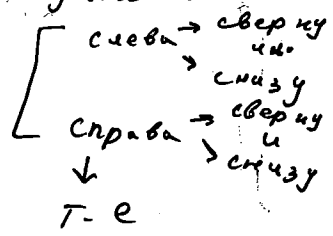 слева → сверху
и
снизу
справа → сверху
и
снизу
т-е